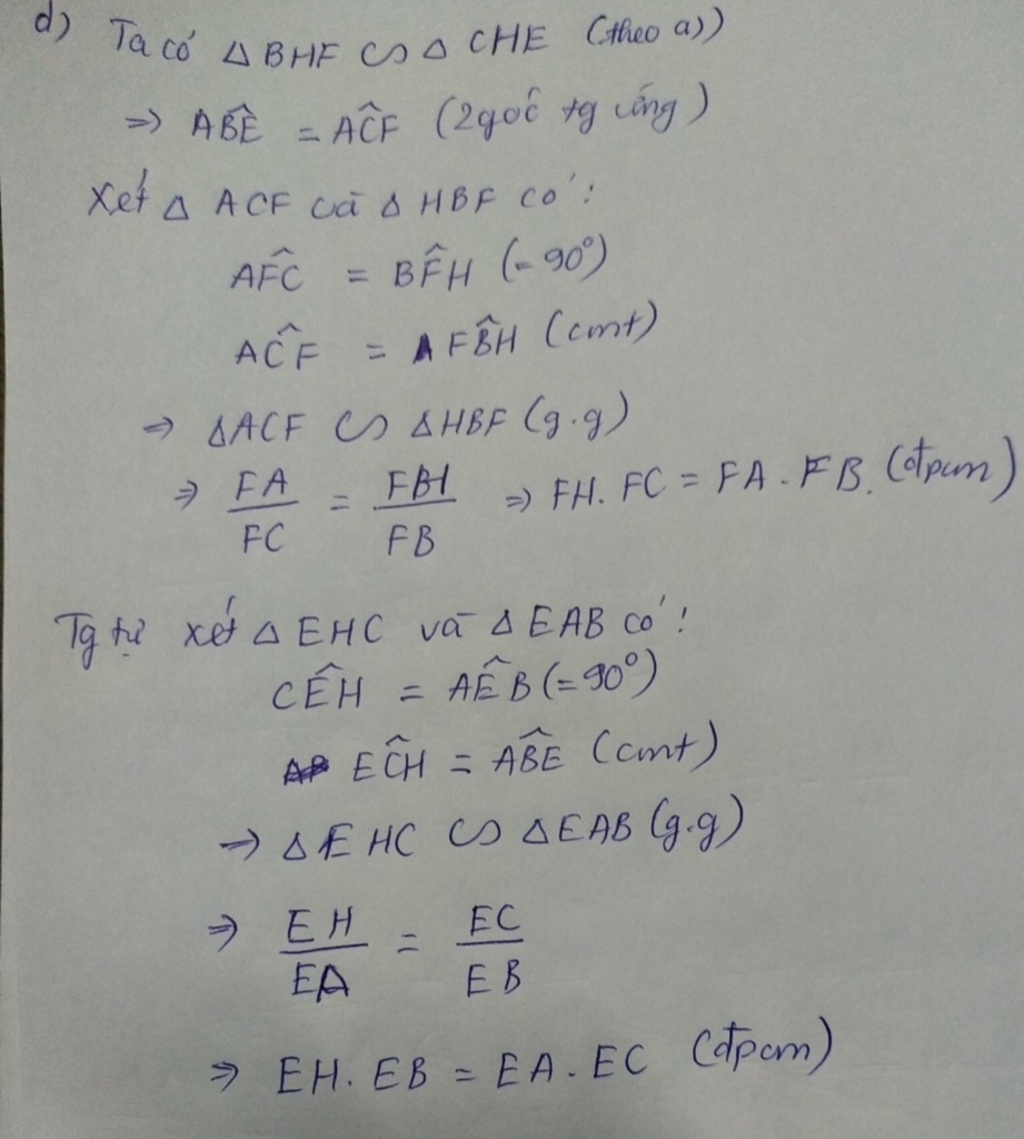 d) Ta có △BHF ∽ △CHE (theo a))
⇒ AB̂E = AĈF (2góc tg ứng)
Xét △ ACF và △ HBF có :
AF̂C = BF̂H (=90°)
AĈF = FB̂H (cmt)
⇒ △ACF ∽ △HBF (g.g)
⇒ FA/FC = FH/FB ⇒ FH. FC = FA. FB. (đpcm)
Tg tự xét △ EHC và △ EAB có :
CÊH = AÊB (=90°)
EĈH = AB̂E (cmt)
⇒ △EHC ∽ △EAB (g.g)
⇒ EH/EA = EC/EB
⇒ EH. EB = EA. EC (đpcm)